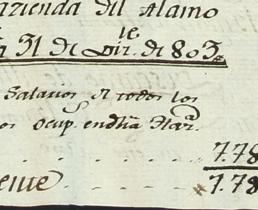 azienda del Alamo
31 de Dic.re de 803
Salarios de todos los
os Ocup. endha Haz.a
7.78
7.78